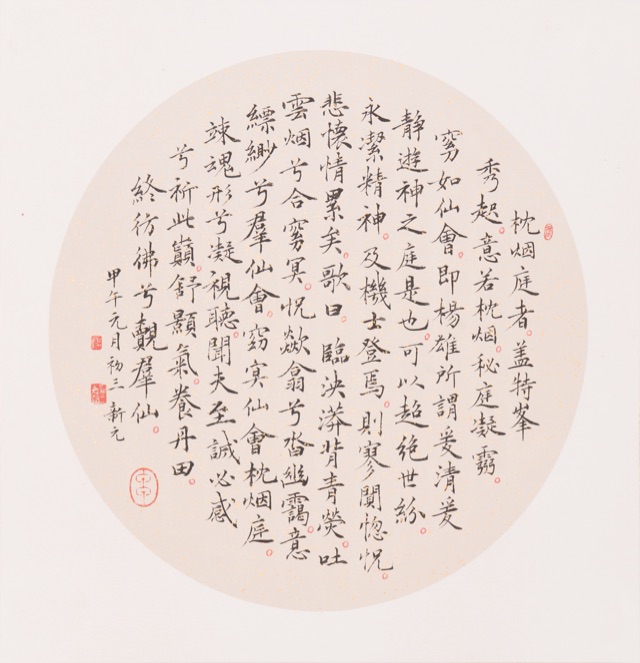 枕烟庭者。盖特峯
秀起。意若枕烟。秘庭凝靄。
窈如仙會。即楊雄所謂爰清爰
靜遊神之庭是也。可以超絕世紛。
永潔精神。及機士登焉。則寥闃惚怳。
悲懷情累矣。歌曰。臨泱漭背青熒。吐
雲烟兮合窈冥。怳歘翕兮沓幽靄。意
縹緲兮羣仙會。窈冥仙會枕烟庭。
竦魂形兮凝視聽。聞夫至誠必感
兮祈此巔。舒顥氣。養丹田。
終彷佛兮覿羣仙。
甲午元月初三 新元